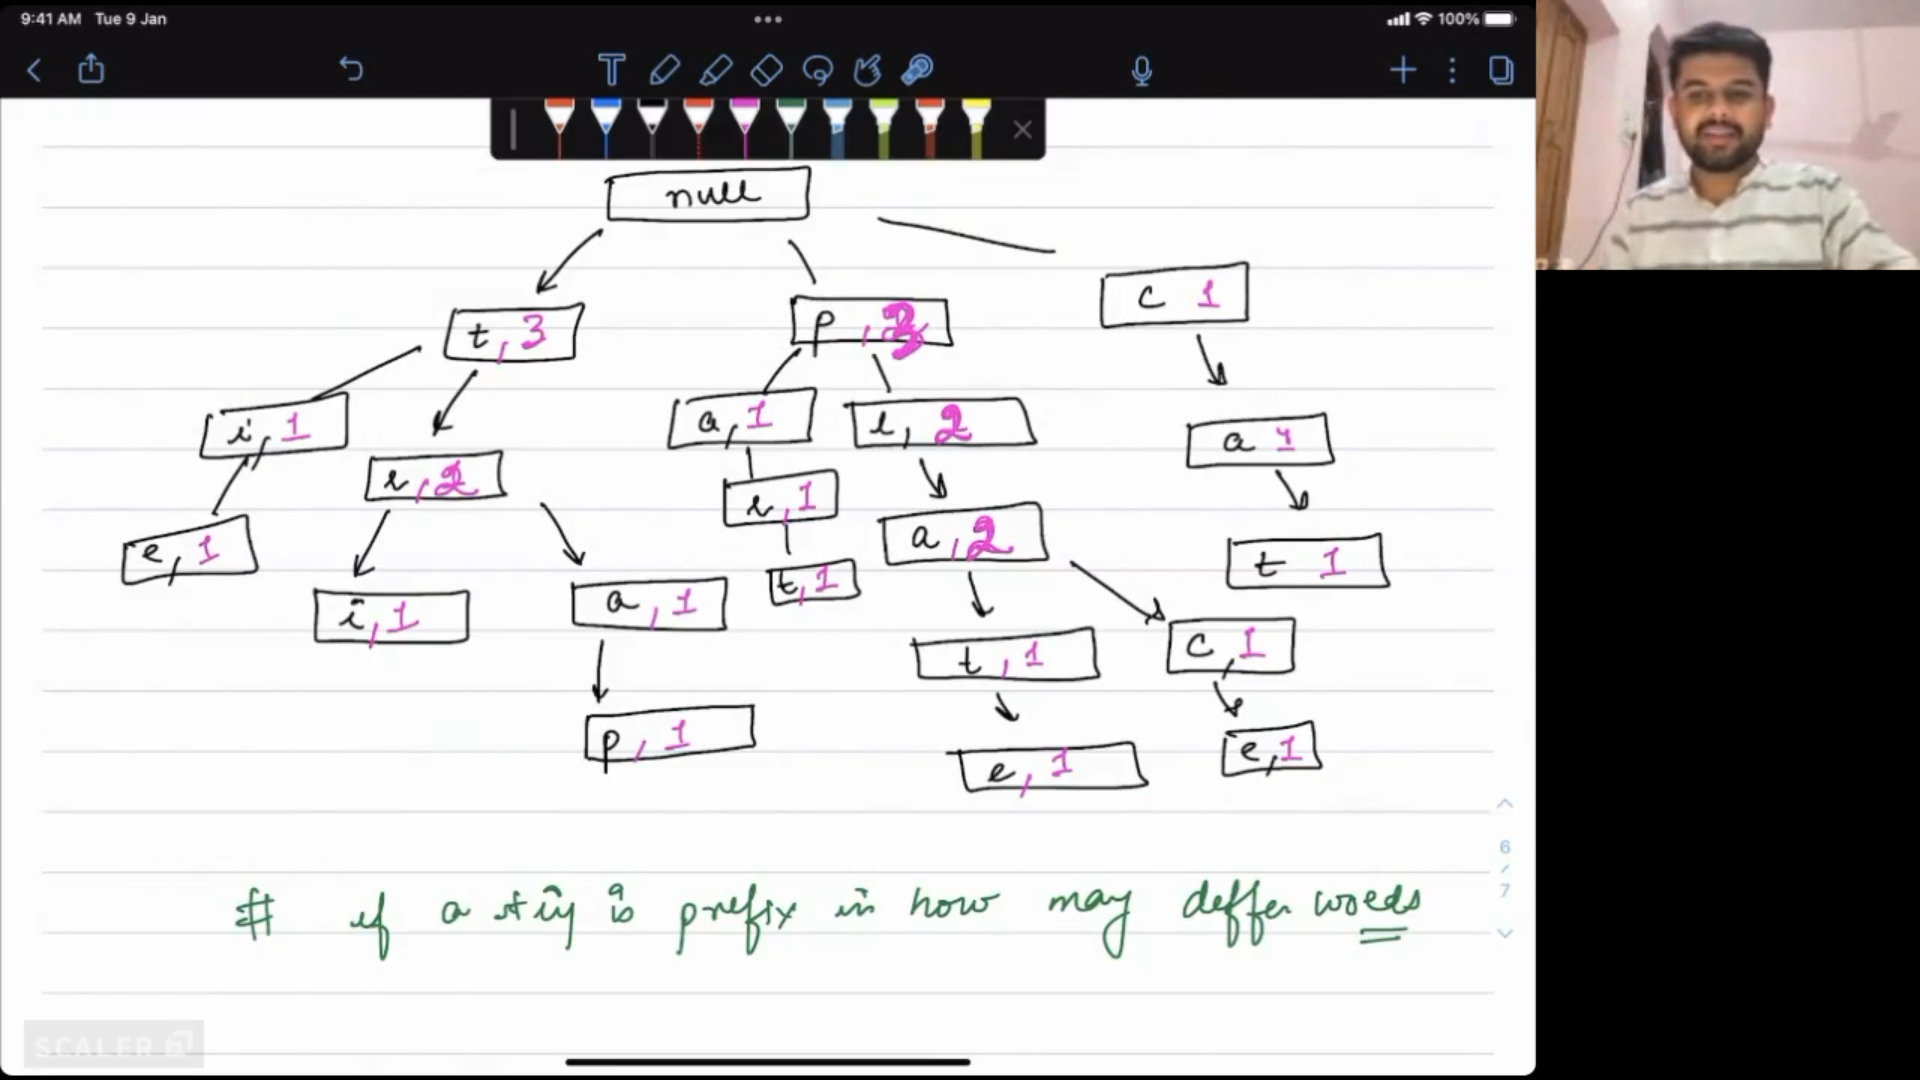 9:41 AM Tue 9 Jan
100%
T
null
t, 3
p, 3
c 1
i, 1
r, 2
a, 1
l, 2
a 1
e, 1
r, 1
a, 2
t 1
i, 1
a, 1
t, 1
t, 1
c, 1
p, 1
e, 1
e, 1
# if a is prefix in how may differ words
6
/
7
SCALER